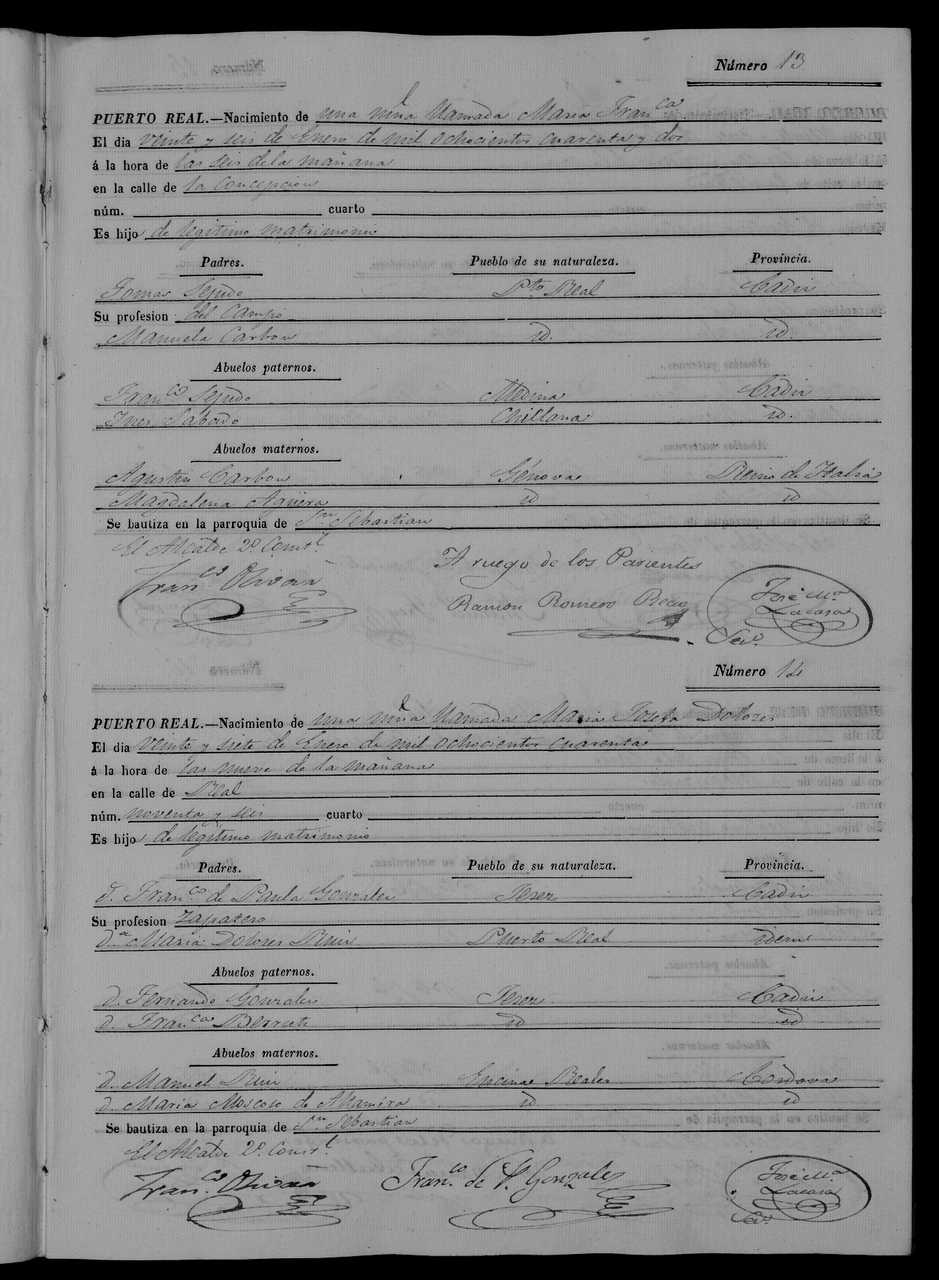 Número 13
PUERTO REAL.—Nacimiento de una niña llamada Maria Fran.ca
El dia veinte y seis de Enero de mil ochocientos cuarenta y dos
á la hora de las seis de la mañana
en la calle de la Concepcion
núm. cuarto
Es hijo de legitimo matrimonio
Padres. Pueblo de su naturaleza. Provincia.
Tomas Sejudo Pto Real Cadiz
Su profesion del Campo
Manuela Carbon id. id.
Abuelos paternos.
Fran.co Sejudo Medina Cadiz
Ines Saborido Chiclana id.
Abuelos maternos.
Agustin Carbon Génova Reino de Italia
Magdalena Aguera id id
Se bautiza en la parroquia de Sn Sebastian
El Alcalde 2º Const.l
A ruego de los Parientes
Fran.co Olivan Ramon Romero José Mª Lacasa
Sec.
Número 14
PUERTO REAL.—Nacimiento de una niña llamada Maria Josefa Dolores
El dia veinte y siete de Enero de mil ochocientos cuarenta
á la hora de las nueve de la mañana
en la calle de Real
núm. noventa y seis cuarto
Es hijo de legitimo matrimonio
Padres. Pueblo de su naturaleza. Provincia.
d. Fran.co de Paula Gonzales Jerez Cadiz
Su profesion Zapatero
d.a Maria Dolores Ruiz Puerto Real idem
Abuelos paternos.
d. Fernando Gonzales Jerez Cadiz
d. Fran.ca id id
Abuelos maternos.
d. Manuel Ruiz Encinas Reales Cordova
d. Maria Moscoso de Altamira id id
Se bautiza en la parroquia de Sn Sebastian
El Alcalde 2º Const.l
Fran.co Olivan Fran.co de P. Gonzales José Mª Lacasa
Sec.